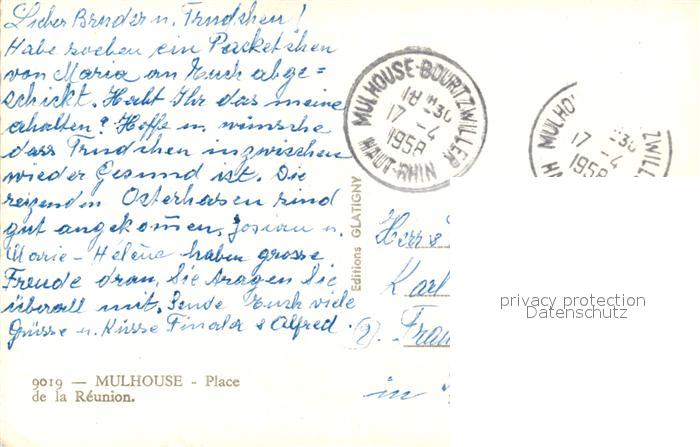 Lieber Bruder u. Trudchen!
Habe soeben ein Packetchen
von Maria an Euch abge=
schickt. Habt Ihr das meine
erhalten? Hoffe u. wünsche
dass Trudchen inzwischen
wieder Gesund ist. Die
reizenden Osterhasen sind
gut angekommen, Josian u.
Marie - Hélène haben grosse
Freude dran, Sie tragen Sie
überall mit. Sende Euch viele
Grüsse u. Küsse & Alfred.
9019 — MULHOUSE - Place
de la Réunion.
Editions GLATIGNY
MULHOUSE-BOURTZWILLER
18 H 30
17 - 4
1958
HAUT-RHIN
MULHO
ZWILL
30
17 - 4
1958
H
Herr
Karl
Fran
in
privacy protection
Datenschutz